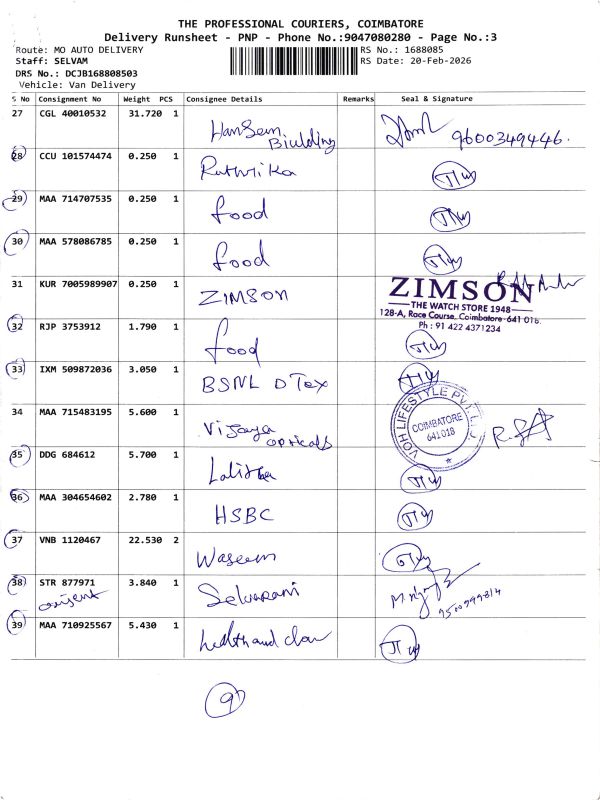 THE PROFESSIONAL COURIERS, COIMBATORE
Delivery Runsheet - PNP - Phone No.:9047080280 - Page No.:3
Route: MO AUTO DELIVERY
RS No.: 1688085
Staff: SELVAM
RS Date: 20-Feb-2026
DRS No.: DCJB168808503
Vehicle: Van Delivery
S No Consignment No Weight PCS Consignee Details Remarks Seal & Signature
27 CGL 40010532 31.720 1 9600349446.
28 CCU 101574474 0.250 1 Ruthrika
29 MAA 714707535 0.250 1 food
30 MAA 578086785 0.250 1 food
31 KUR 7005989907 0.250 1 ZIMSON
ZIMSON
THE WATCH STORE 1948
128-A, Race Course, Coimbatore-641 018.
Ph : 91 422 4371234
32 RJP 3753912 1.790 1 food
33 IXM 509872036 3.050 1 BSNL
34 MAA 715483195 5.600 1 Vijaya opticals
VOH LIFESTYLE PVT. LTD.
COIMBATORE
641 018
35 DDG 684612 5.700 1 Lalitha
36 MAA 304654602 2.780 1 HSBC
37 VNB 1120467 22.530 2 Waseem
38 STR 877971 3.840 1 Selvarani
39 MAA 710925567 5.430 1
9